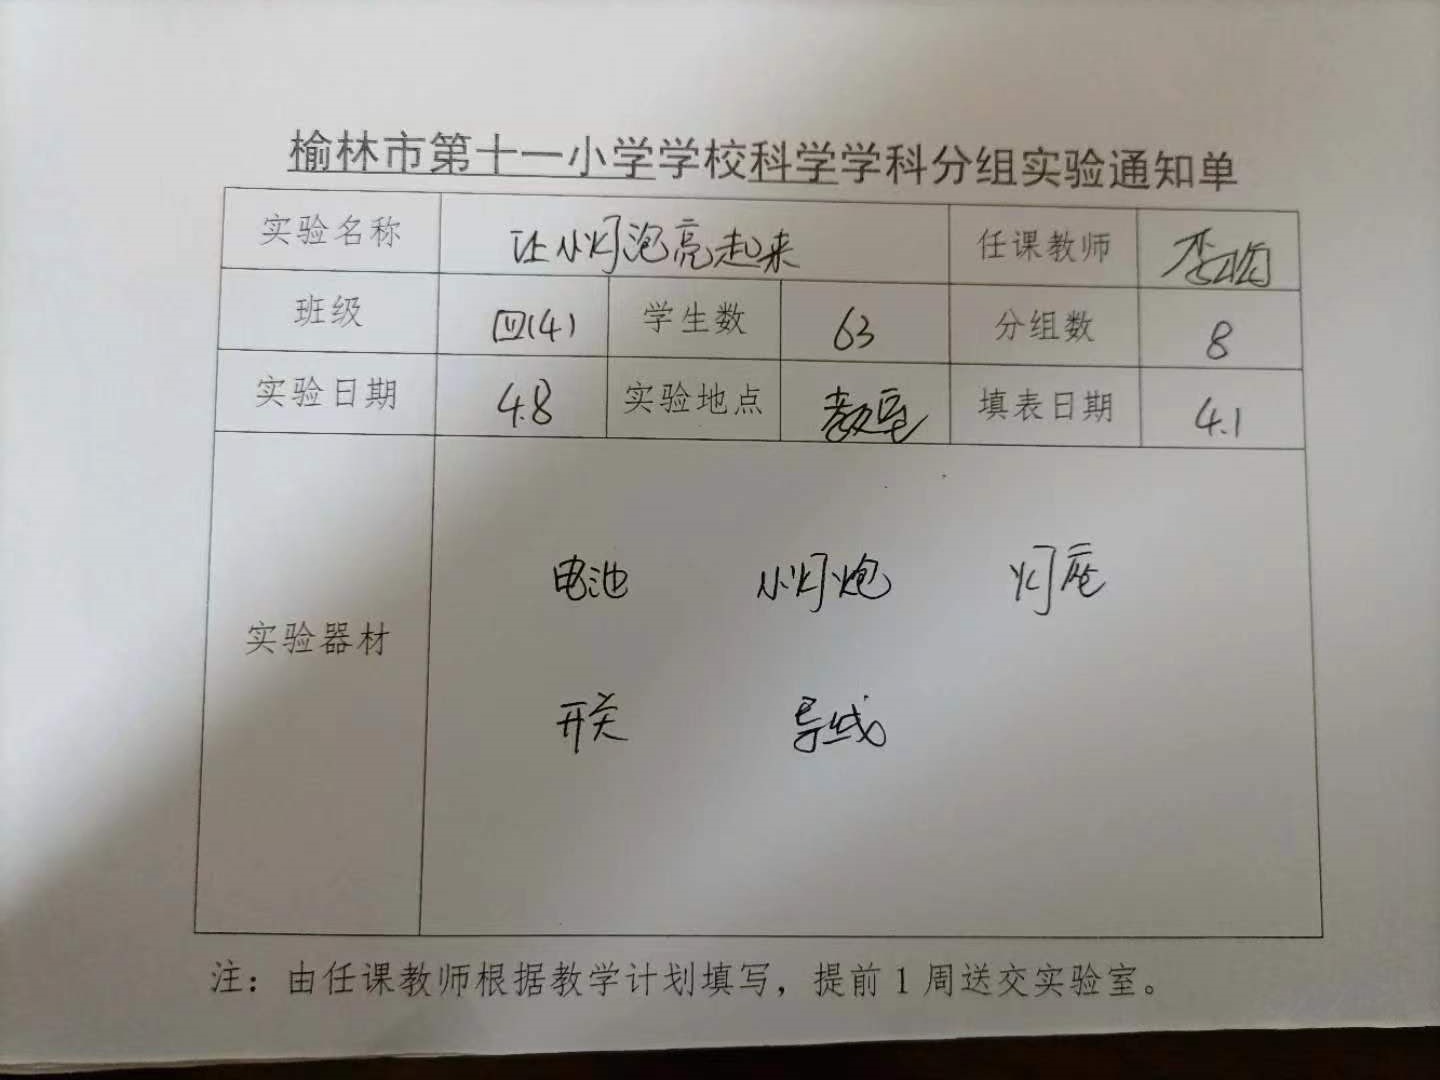 榆林市第十一小学学校科学学科分组实验通知单
实验名称 让小灯泡亮起来 任课教师 李
班级 四(4) 学生数 63 分组数 8
实验日期 4.8 实验地点 教室 填表日期 4.1
电池 小灯炮 灯座
实验器材
开关 导线
注：由任课教师根据教学计划填写，提前1周送交实验室。